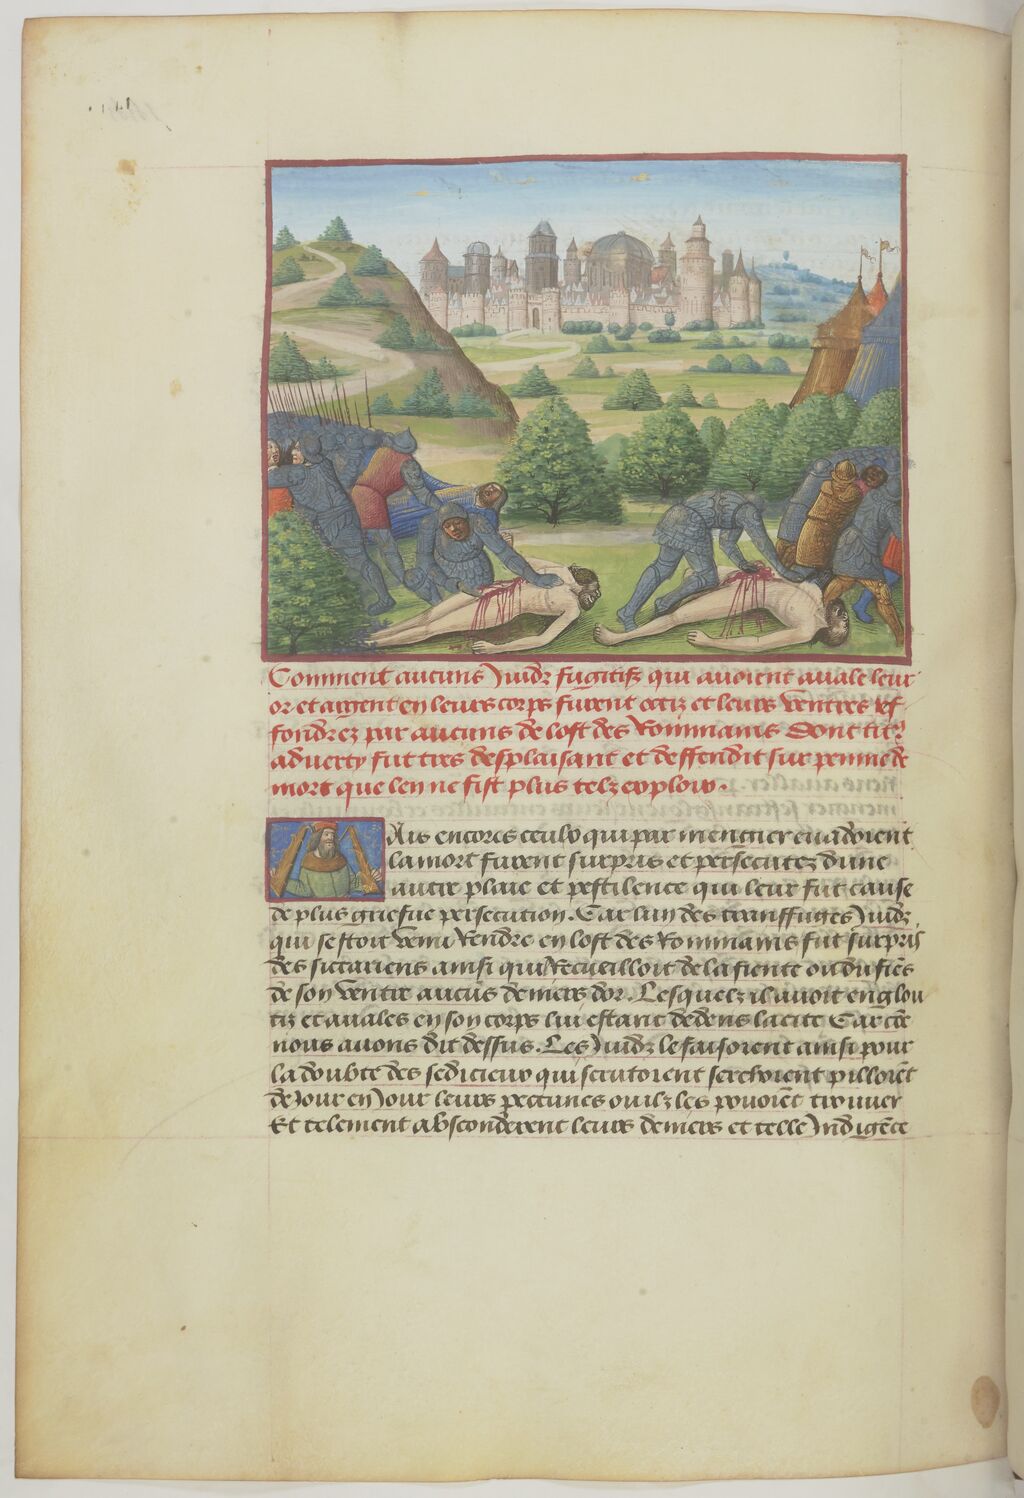 Comment aucuns Juidz fugitifz qui avoient avale leur
or et argent en leurs corps furent occiz et leurs ventres ef
fondrez par aucuns de lost des Rommains Dont tit9
adverty fut tres desplaisant et deffendit sur peinne de
mort que len ne fist plus telz explois.
Mais encores ceulx qui par mengier evadoient
la mort furent surpris et persecutez dune
autre plaie et pestilence qui leur fut cause
de plus griefue persecution. Car lun des transfuges Juidz
qui sestoit venu Rendre en lost des Rommains fut surpris
des siccariens ainsi quil Recueilloit de la fiente ou du fiēs
de son ventre aucūs deniers dor. Lesquelz il avoit englou
tiz et avales en son corps lui estant dedens la cite Car cōe
nous avons dit dessus. Les Juidz le faisoient ainsi pour
la doubte des sedicieux qui scrutoient serchoient pilloiēt
de Jour en Jour leurs peccunes ou ilz les povoiēt trouver
Et telement absconderent leurs deniers et telle Indigēce